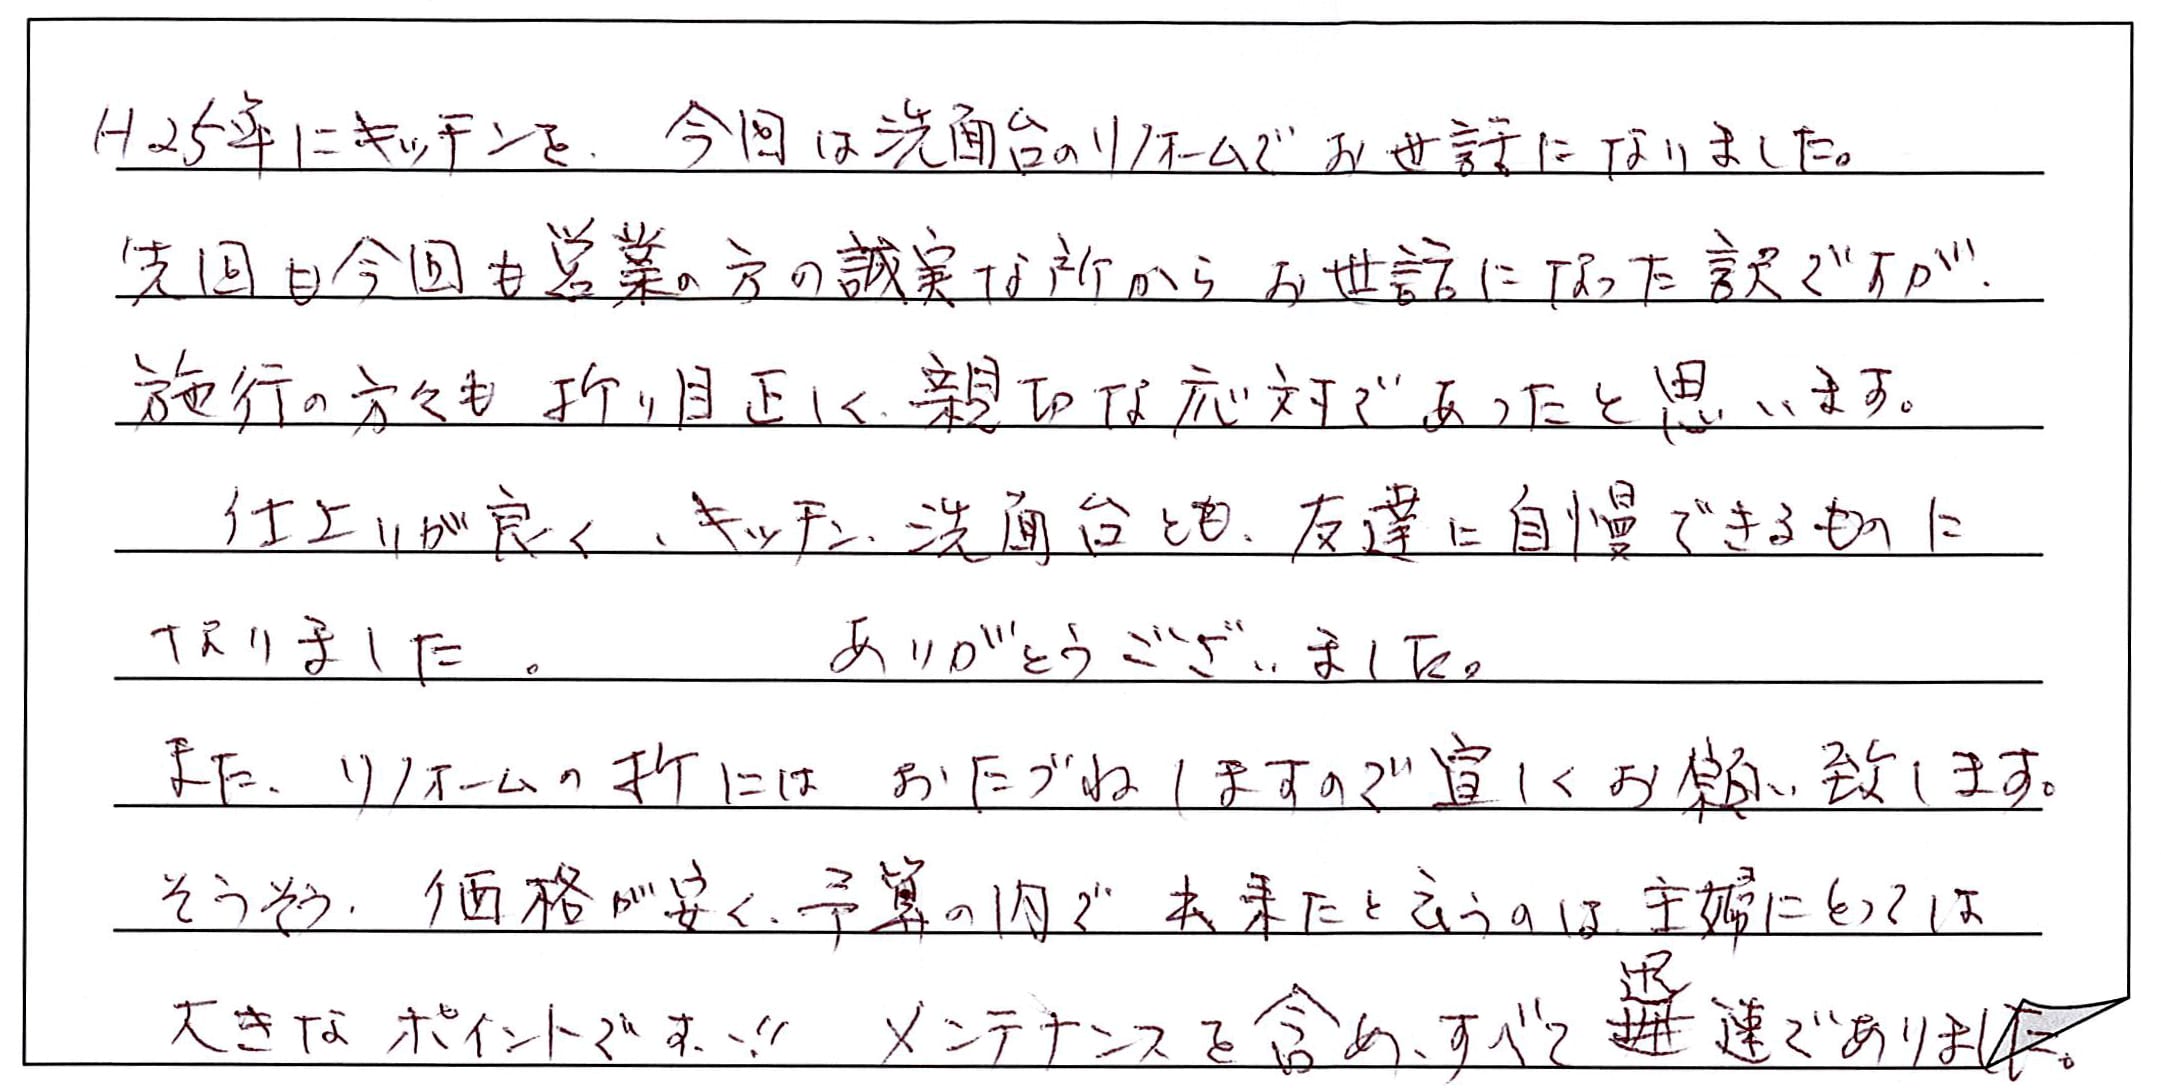 H25年にキッチンを、今回は洗面台のリフォームでお世話になりました。
先回も今回も営業の方の誠実な所からお世話になった訳ですが、
施行の方々も折り目正しく、親切な応対であったと思います。
仕上りが良く、キッチン、洗面台とも、友達に自慢できるものに
なりました。 ありがとうございました。
また、リフォームの折にはおたづねしますので宜しくお願い致します。
そうそう、価格が安く、予算の内で出来たと云うのは、主婦にとっては
大きなポイントです、!! メンテナンスを含め、すべて迅速でありました。